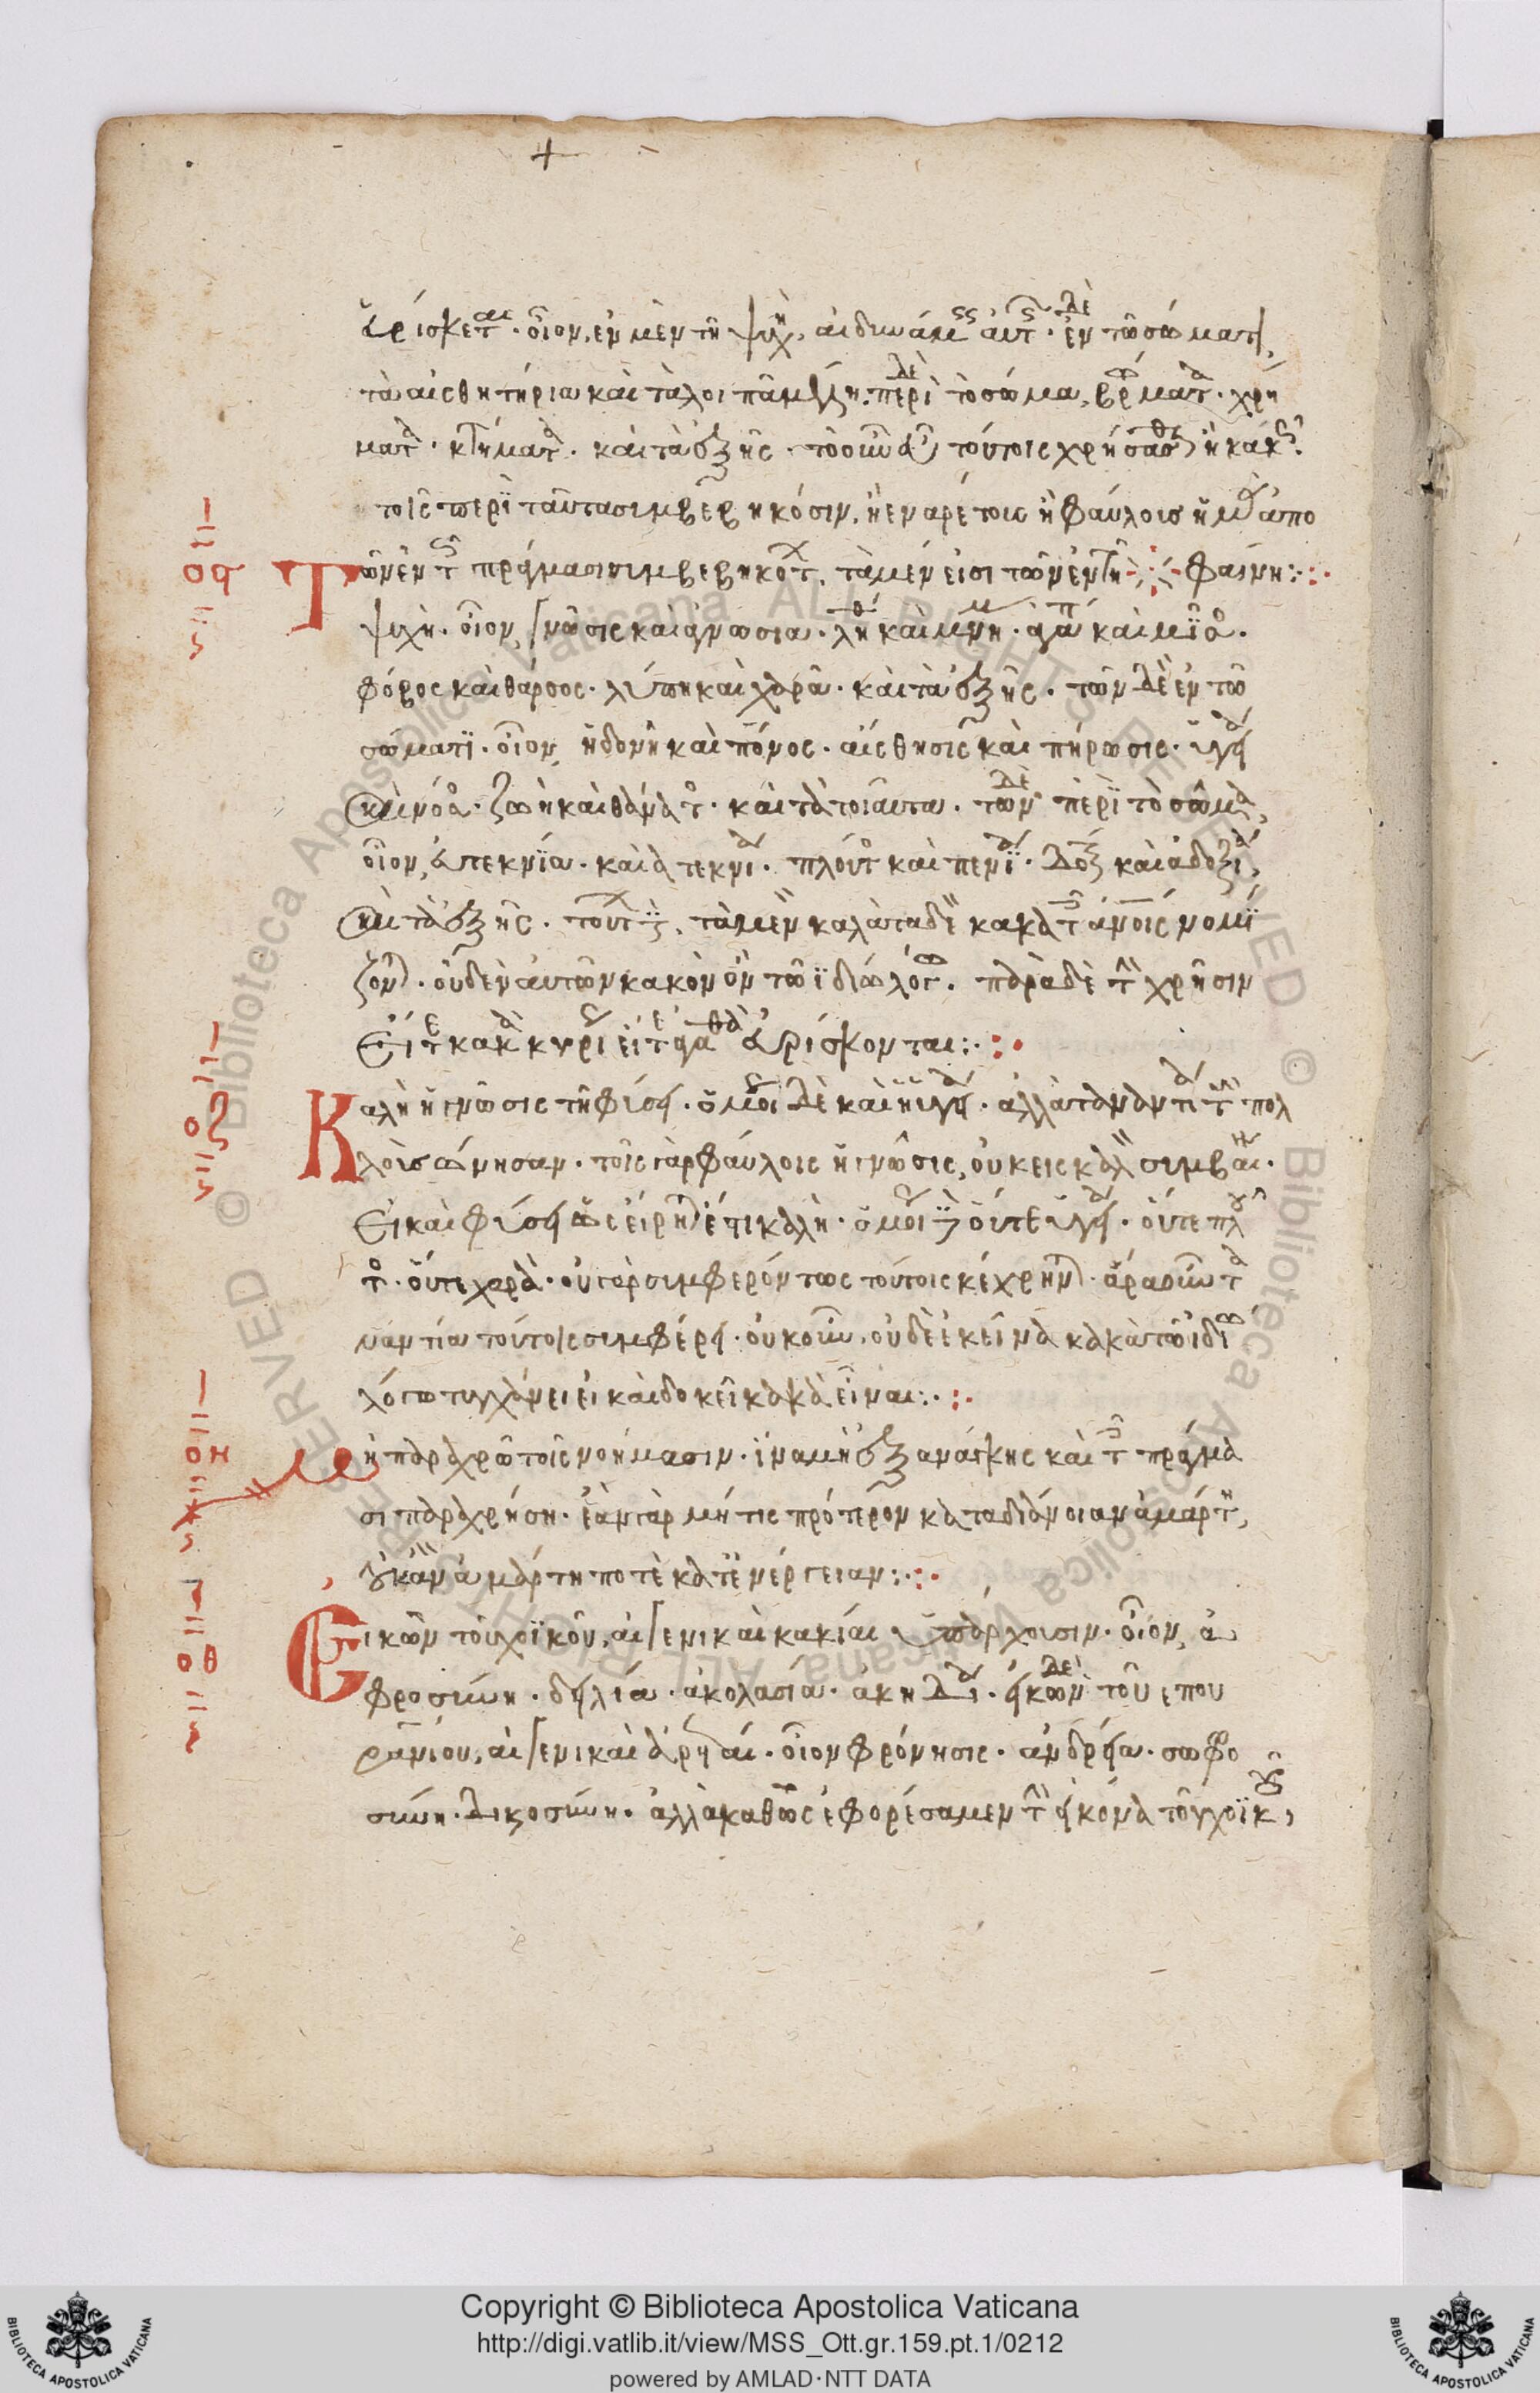 +
εὑρίσκεται. οἷον, ἐν μὲν τῇ ψυχῇ, αἱ δυνάμεις αὐτῆς. ἐν δὲ τῷ σώματι,
τὰ αἰσθητήρια καὶ τὰ λοιπὰ μέλη. περὶ δὲ τὸ σῶμα, βρώματα. χρή
ματα. κτήματα. καὶ τὰ ἑξῆς. τὸ οὖν εὖ τούτοις χρήσασθαι ἢ κακῶς.
τοῖς περὶ ταῦτα συμβεβηκόσιν, ἢ ἐναρέτοις ἢ φαύλοις ἡμᾶς ἀπο
Τῶν ἐν τοῖς πράγμασι συμβεβηκότων, τὰ μέν εἰσι τῶν ἐν τῇ φαίνῃ
ψυχῇ. οἷον, γνῶσις καὶ ἀγνωσία. λήθη καὶ μνήμη. ἀγάπη καὶ μῖσος.
φόβος καὶ θάρσος. λύπη καὶ χαρὰ. καὶ τὰ ἑξῆς. τῶν δὲ ἐν τῷ
σώματι. οἷον, ἡδονὴ καὶ πόνος. αἴσθησις καὶ πήρωσις. ὑγεία
καὶ νόσος. ζωὴ καὶ θάνατος. καὶ τὰ τοιαῦτα. τῶν δὲ περὶ τὸ σῶμα,
οἷον, εὐτεκνία. καὶ ἀτεκνία. πλοῦτος καὶ πενία. δόξα καὶ ἀδοξία,
καὶ τὰ ἑξῆς. τούτων δὲ, τὰ μὲν καλὰ τὰ δὲ κακὰ τοῖς ἀνοις νομί
ζονται. οὐδὲν αὐτῶν κακὸν ὂν τῷ ἰδίῳ λόγῳ. παρὰ δὲ τὴν χρῆσιν
εἴτε κακὰ κυρίως εἴτε ἀγαθὰ εὑρίσκονται
Καλὴ ἡ γνῶσις τῇ φύσει. ὁμοίως δὲ καὶ ἡ ὑγεία. ἀλλὰ τἀναντία τοὺς πολ
λοὺς ὤνησαν. τοῖς γὰρ φαύλοις ἡ γνῶσις, οὐκ εἰς καλὸν συμβαίνει.
εἰ καὶ φύσει ὡς εἴρηται ἐστὶ καλὴ. ὁμοίως δὲ οὔτε ὑγεία. οὔτε πλοῦ
τος. οὔτε χαρὰ. οὐ γὰρ συμφερόντως τούτοις κέχρηνται. ἆρα οὖν τὰ
ναντία τούτοις συμφέρει. οὐκοῦν, οὐδὲ ἐκεῖνα κακὰ τῷ ἰδίῳ
λόγῳ τυγχάνει εἰ καὶ δοκεῖ κακὰ εἶναι
Μὴ παραχρῶ τοῖς νοήμασιν. ἵνα μὴ ἐξ ἀνάγκης καὶ τοῖς πράγμα
σι παραχρήσῃ. ἐὰν γὰρ μή τις πρότερον κατὰ διάνοιαν ἁμάρτῃ,
οὐκ ἂν ἁμάρτῃ ποτὲ κατ' ἐνέργειαν
Εἰκὼν τοῦ χοϊκοῦ, αἱ γενικαὶ κακίαι ὑπάρχουσιν. οἷον, ἀ
φροσύνη. δειλία. ἀκολασία. ἀκηδία. εἰκὼν δὲ τοῦ ἐπου
ρανίου, αἱ γενικαὶ ἀρεταί. οἷον φρόνησις. ἀνδρεία. σωφρο
σύνη. δικαιοσύνη. ἀλλὰ καθὼς ἐφορέσαμεν τὴν εἰκόνα τοῦ χοϊκοῦ,
Copyright © Biblioteca Apostolica Vaticana
http://digi.vatlib.it/view/MSS_Ott.gr.159.pt.1/0212
powered by AMLAD·NTT DATA